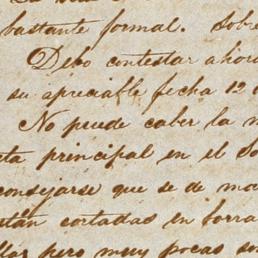 bastante formal. Sobre
Debo contestar ahora
su apreciable fecha 12
No puede caber la
ta principal en el
consejarse que se de
stán cortadas en borra
pero muy pocas